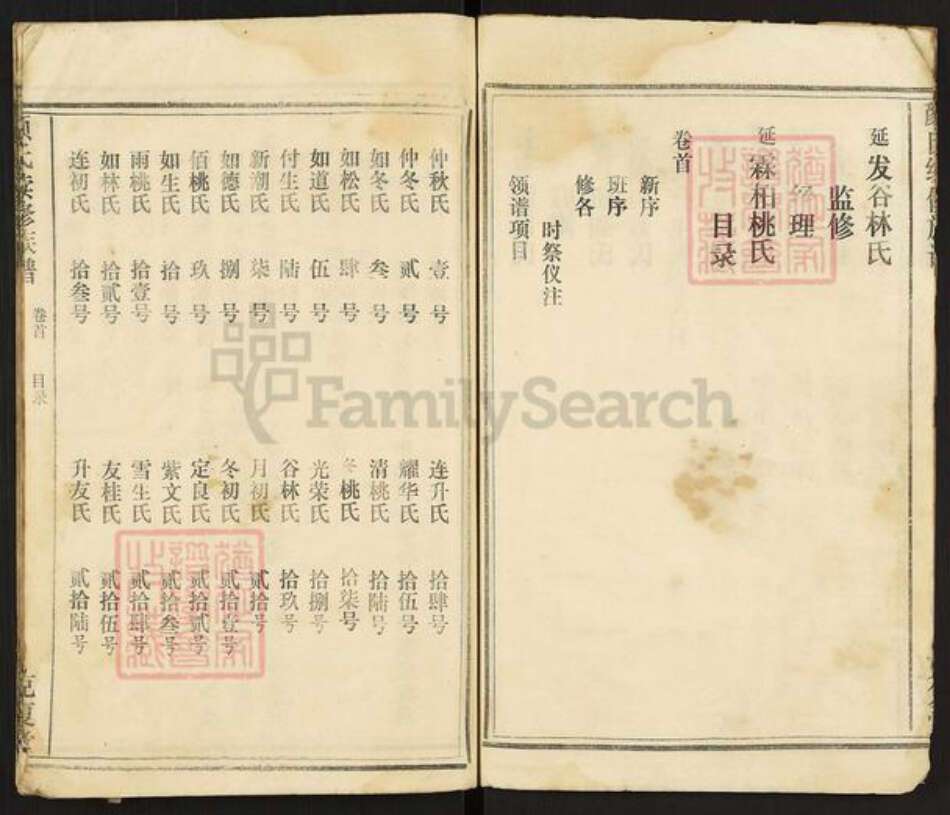 延发谷林氏
监修
经理
延霖柏桃氏
目录
卷首
新序
班序
修各
时祭仪注
领谱项目
仲秋氏 壹号
仲冬氏 贰号
如冬氏 叁号
如松氏 肆号
如道氏 伍号
付生氏 陆号
新潮氏 柒号
如德氏 捌号
佰桃氏 玖号
如生氏 拾号
雨桃氏 拾壹号
如林氏 拾贰号
连初氏 拾叁号
连升氏 拾肆号
耀华氏 拾伍号
清桃氏 拾陆号
冬桃氏 拾柒号
光荣氏 拾捌号
谷林氏 拾玖号
月初氏 贰拾号
冬初氏 贰拾壹号
定良氏 贰拾贰号
紫文氏 贰拾叁号
雪生氏 贰拾肆号
友桂氏 贰拾伍号
升友氏 贰拾陆号
卷首 目录
FamilySearch